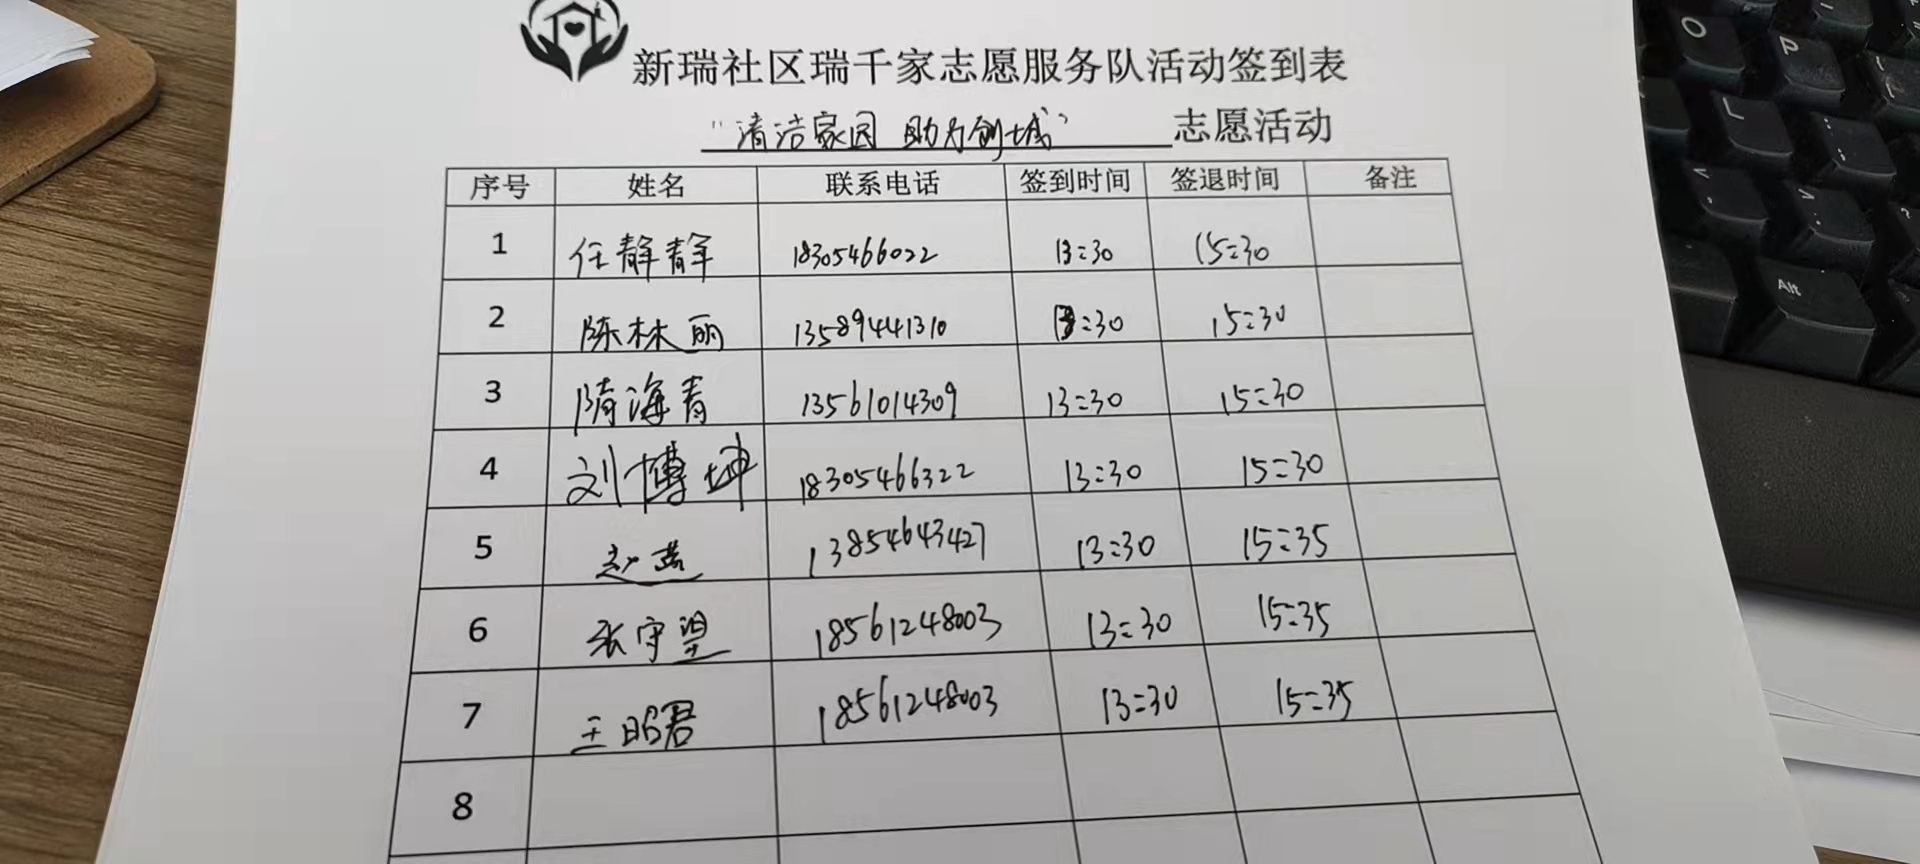 新瑞社区瑞千家志愿服务队活动签到表
"清洁家园 助力创城" 志愿活动
序号 姓名 联系电话 签到时间 签退时间 备注
1 任静静 18305466022 13:30 15:30
2 陈林丽 13589441310 13:30 15:30
3 隋海青 13561014309 13:30 15:30
4 刘博坤 18305466322 13:30 15:30
5 赵 13854643427 13:30 15:35
6 张守望 18561248003 13:30 15:35
7 王昭君 18561248003 13:30 15:35
8
O P
L
Alt